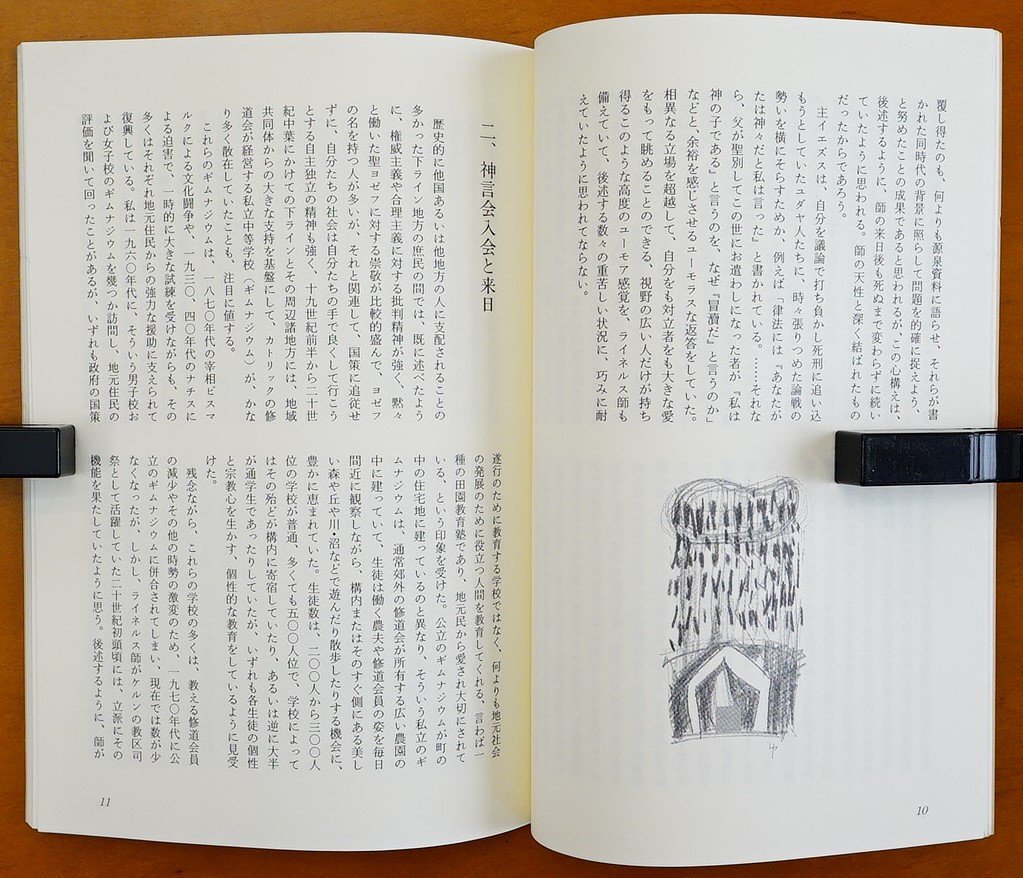 覆し得たのも、何よりも源泉資料に語らせ、それらが書
かれた同時代の背景に照らして問題を的確に捉えよう、
と努めたことの成果であると思われるが、この心構えは、
後述するように、師の来日後も死ぬまで変わらずに続い
ていたように思われる。師の天性と深く結ばれたもの
だったからであろう。
主イエズスは、自分を議論で打ち負かし死刑に追い込
もうとしていたユダヤ人たちに、時々張りつめた論戦の
勢いを横にそらすためか、例えば「律法には『あなたが
たは神々だと私は言った』と書かれている。……それな
ら、父が聖別してこの世にお遣わしになった者が、『私は
神の子である』と言うのを、なぜ『冒瀆だ』と言うのか」
などと、余裕を感じさせるユーモラスな返答をしていた。
相異なる立場を超越して、自分をも対立者をも大きな愛
をもって眺めることのできる、視野の広い人だけが持ち
得るこのような高度のユーモア感覚を、ライネルス師も
備えていて、後述する数々の重苦しい状況に、巧みに耐
えていたように思われてならない。
10
二、神言会入会と来日
歴史的に他国あるいは他地方の人に支配されることの
多かった下ライン地方の庶民の間では、既に述べたよう
に、権威主義や合理主義に対する批判精神が強く、黙々
と働いた聖ヨゼフに対する崇敬が比較的盛んで、ヨゼフ
の名を持つ人が多いが、それと関連して、国策に追従せ
ずに、自分たちの社会は自分たちの手で良くして行こう
とする自主独立の精神も強く、十九世紀前半から二十世
紀中葉にかけての下ラインとその周辺地方には、地域
共同体からの大きな支持を基盤にして、カトリックの修
道会が経営する私立中等学校（ギムナジウム）が、かな
り多く散在していたことも、注目に値する。
これらのギムナジウムは、一八七〇年代の宰相ビスマ
ルクによる文化闘争や、一九三〇、四〇年代のナチスに
よる迫害で、一時的に大きな試練を受けながらも、その
多くはそれぞれ地元住民からの強力な援助に支えられて
復興している。私は一九六〇年代に、そういう男子校お
よび女子校のギムナジウムを幾つか訪問し、地元住民の
評価を聞いて回ったことがあるが、いずれも政府の国策
遂行のために教育する学校ではなく、何よりも地元社会
の発展のために役立つ人間を教育してくれる、言わば一
種の田園教育塾であり、地元民から愛され大切にされて
いる、という印象を受けた。公立のギムナジウムが町の
中の住宅地に建っているのと異なり、そういう私立のギ
ムナジウムは、通常郊外の修道会が所有する広い農園の
中に建っていて、生徒は働く農夫や修道会員の姿を毎日
間近に観察しながら、構内またはそのすぐ側にある美し
い森や丘や川・沼などで遊んだり散歩したりする機会に、
豊かに恵まれていた。生徒数は、二〇〇人から三〇〇人
位の学校が普通、多くても五〇〇人位で、学校によって
はその殆どが構内に寄宿していたり、あるいは逆に大半
が通学生であったりしていたが、いずれも各生徒の個性
と宗教心を生かす、個性的な教育をしているように見受
けた。
残念ながら、これらの学校の多くは、教える修道会員
の減少やその他の時勢の激変のため、一九七〇年代に公
立のギムナジウムに併合されてしまい、現在では数が少
なくなったが、しかし、ライネルス師がケルンの教区司
祭として活躍していた二十世紀初頭頃には、立派にその
機能を果たしていたように思う。後述するように、師が
11